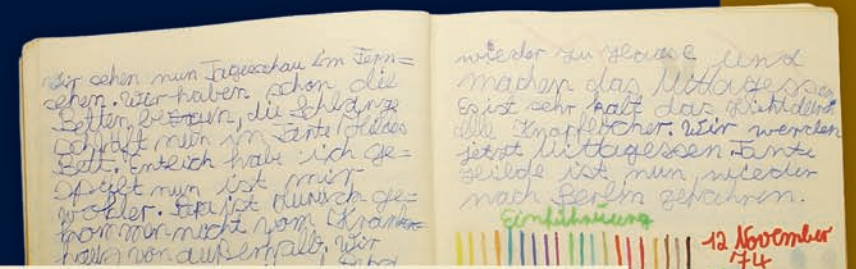 Wir sehen nun Tagesschau im Fern=
sehen. Wir haben schon die
Betten
schläft nun in Tante Hildes
Bett. Entlich habe ich ge=
nun ist mir
wohler. ist durich ge=
kommen nicht vom
von außerhalb. Wir
wieder zu Hause und
machen das Mittagessen
Es ist sehr kalt das zieht durch
alle Knopflöcher. Wir werden
jetzt Mittagessen. Tante
Hilde ist nun wieder
nach Berlin gefahren.
12 November
74